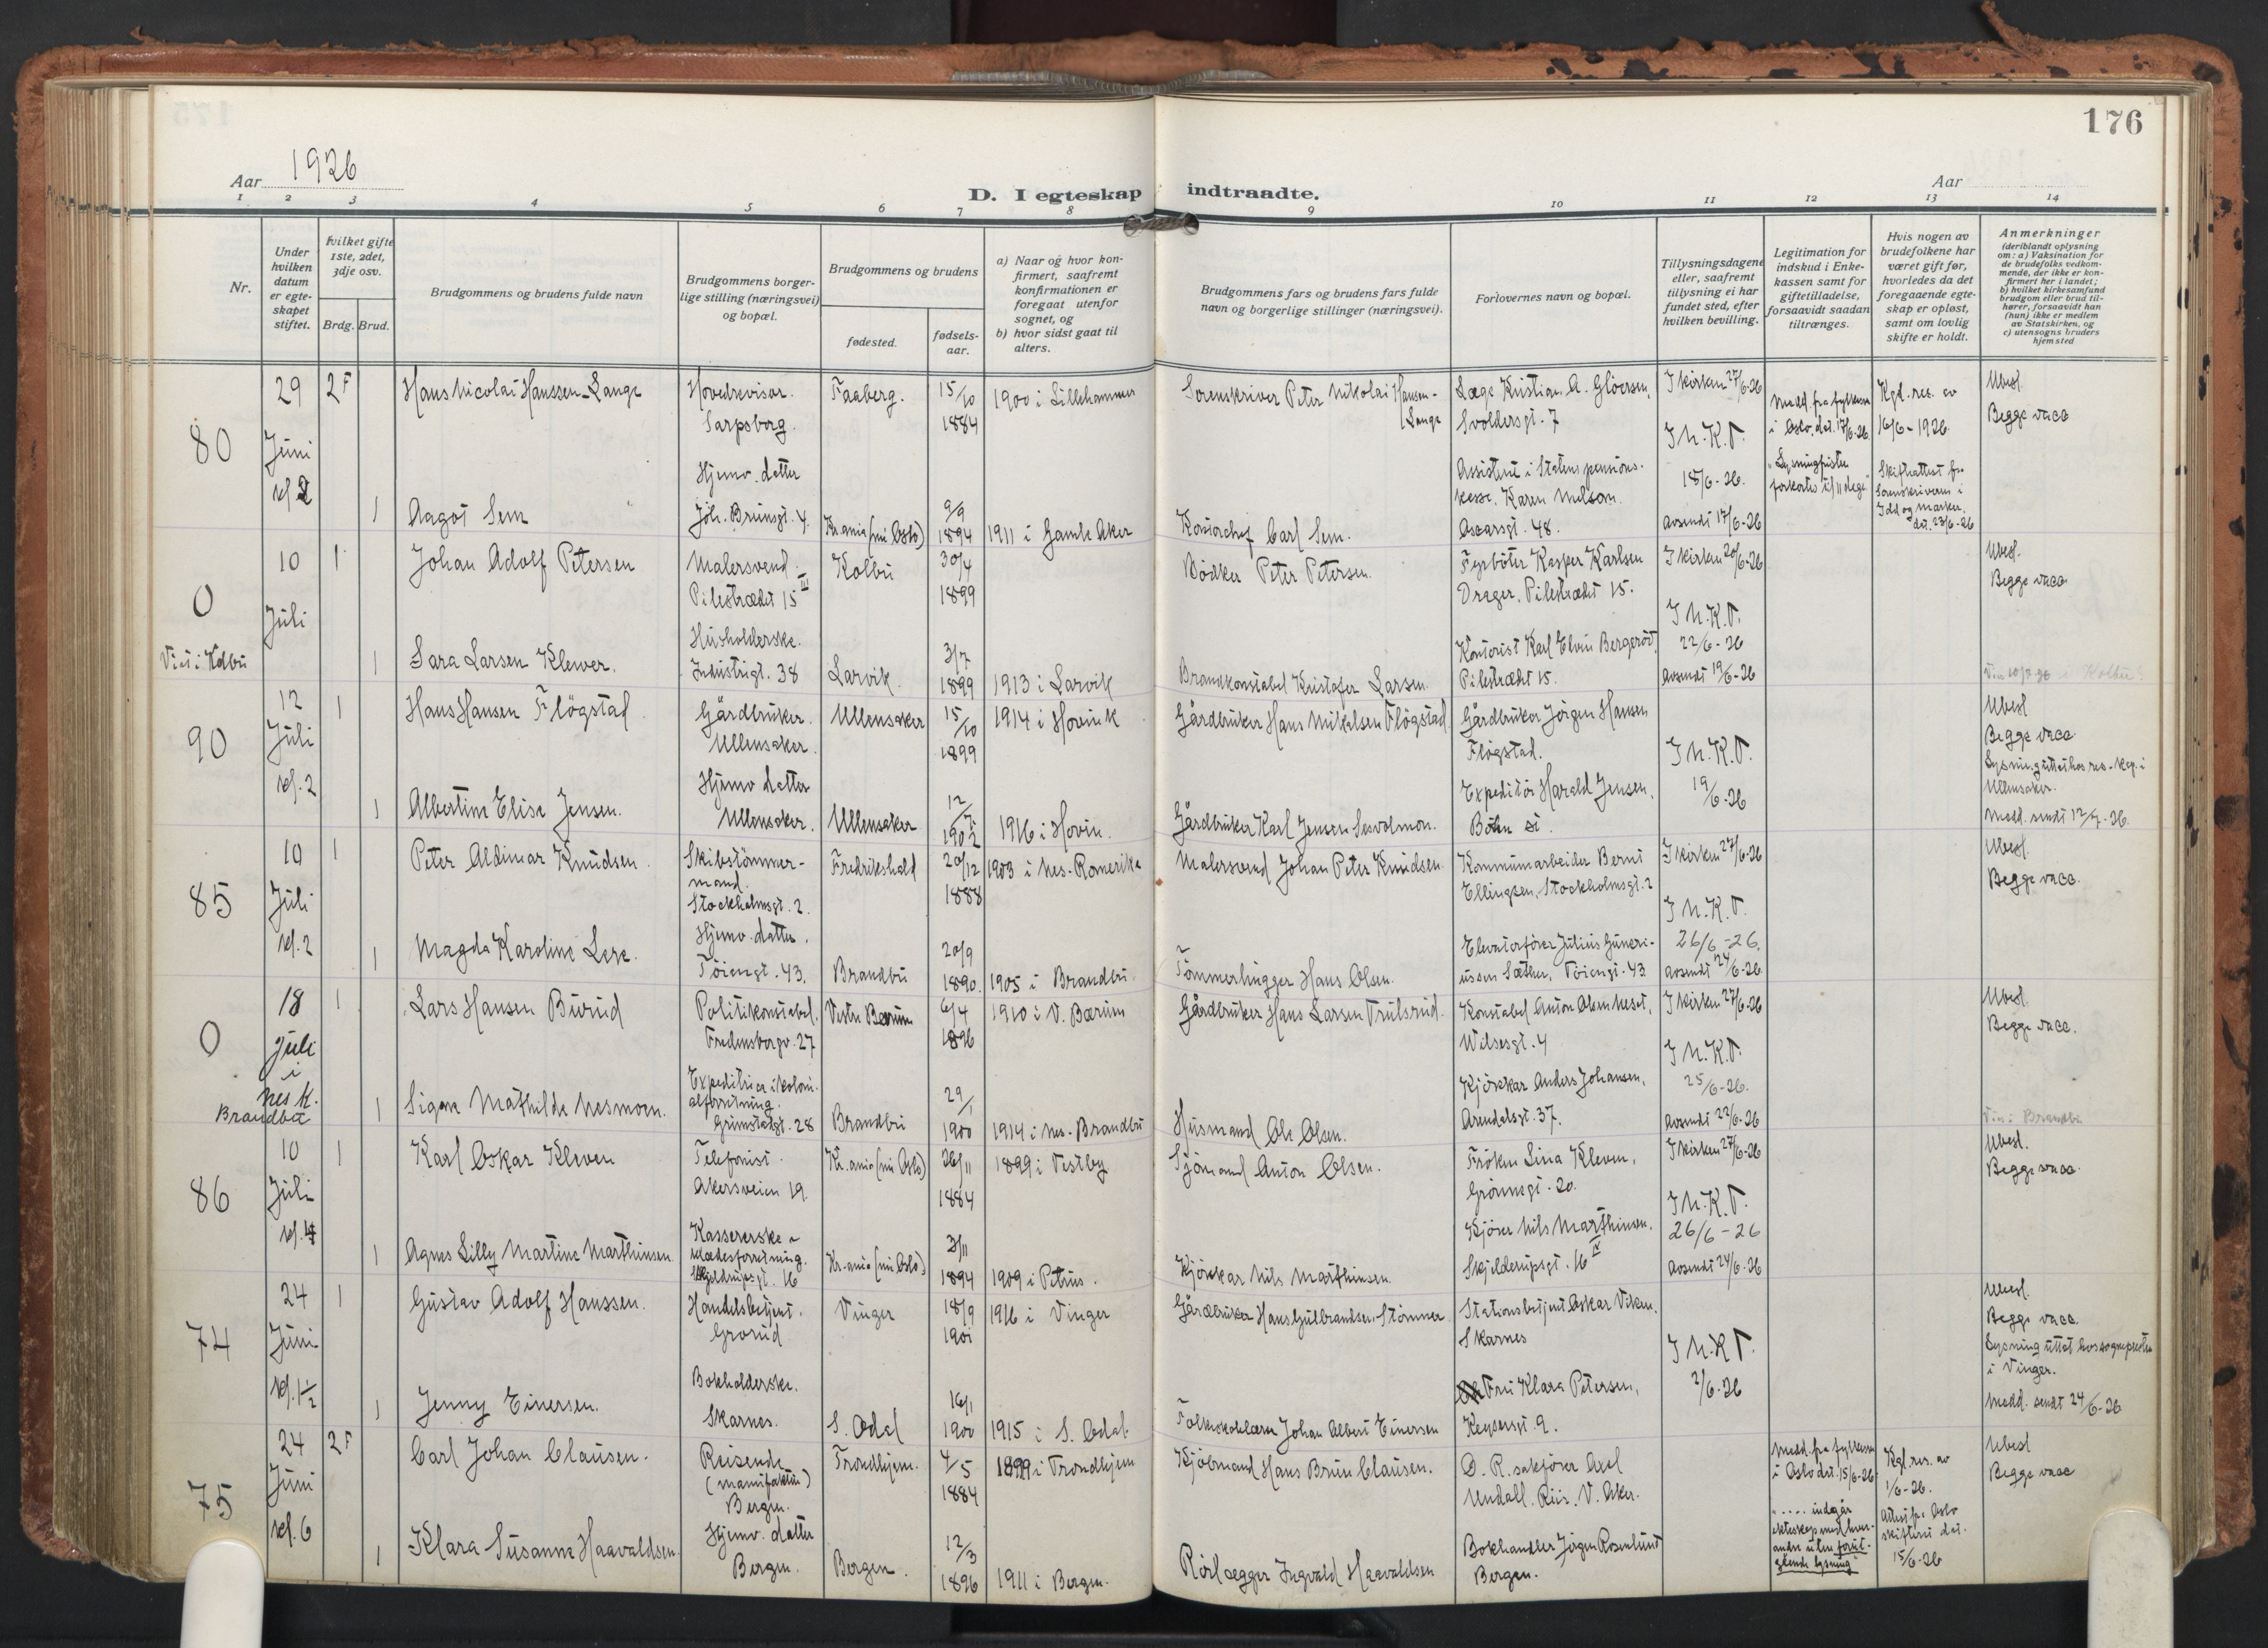 176
Aar 1926
D. I egteskap indtraadte.
Aar
1 2 3 4 5 6 7 8 9 10 11 12 13 14
Nr.
Under hvilken datum er egteskapet stiftet.
hvilket gifte 1ste, 2det, 3dje osv.
Brdg. Brud.
Brudgommens og brudens fulde navn
Brudgommens borgerlige stilling (næringsvei) og bopæl.
Brudgommens og brudens
fødested.
fødselsaar.
a) Naar og hvor konfirmert, saafremt konfirmationen er foregaat utenfor sognet, og
b) hvor sidst gaat til alters.
Brudgommens fars og brudens fars fulde navn og borgerlige stillinger (næringsvei).
Forlovernes navn og bopæl.
Tillysningsdagene eller, saafremt tillysning ei har fundet sted, efter hvilken bevilling.
Legitimation for indskud i Enkekassen samt for giftetilladelse, forsaavidt saadan tiltrænges.
Hvis nogen av brudefolkene har været gift før, hvorledes da det foregaaende egteskap er opløst, samt om lovlig skifte er holdt.
Anmerkninger
(deriblandt oplysning om: a) Vaksination for de brudefolks vedkommende, der ikke er konfirmert her i landet; b) hvilket kirkesamfund brudgom eller brud tilhører, forsaavidt han (hun) ikke er medlem av Statskirken, og c) utensogns bruders hjemsted
80
29 Juni kl. 2
2 F
Hans Nicolai Hanssen-Lange
Hovedrevisor. Sarpsborg.
Faaberg.
15/10 1884
1900 i Lillehammer
Sorenskriver Peter Nikolai Hansen-Lange
Læge Kristian A. Glöersen, Svoldersgt. 7
I kirken 27/6-26
I N.K.T. 18/6-26.
Avsendt 17/6-26
Medd. fra fylkesm. i Oslo, dat. 17/6-26.
"Lysningfristen forkortes til 11 dage"
Kgl. res. av 16/6-1926
Skifteattest fra Sorenskriveren i Idd og Marker. dat. 23/6-26
Ubesl.
Begge vacc
1
Aagot Sem
Hjemv. datter
Joh. Brunsgt. 4.
Kr.ania (nu Oslo)
9/9 1894
1911 i Gamle Aker
Kontorchef Carl Sem.
Assistent i Statens pensionskasse. Karen Nilson.
Oscarsgt. 48.
0
Viet i Kolbu
10 Juli
1
Johan Adolf Petersen
Malersvend.
Pilestrædet 15 III
Kolbu
30/4 1899
Bödker Peter Petersen.
Fyrböter Kasper Karlsen Drager. Pilestrædet 15.
I kirken 20/6-26
I N.K.T. 22/6-26
Avsendt 19/6-26
Ubesl.
Begge vacc
1
Sara Larsen Klewer.
Husholderske.
Industrigt. 38
Larvik.
3/7 1899
1913 i Larvik
Brandkonstabel Kristofer Larsen.
Kontorist Karl Elvin Bergeröd, Pilestrædet 15.
90
12 Juli kl. 2
1
Hans Hansen Flögstad
Gårdbruker. Ullensaker.
Ullensaker
15/10 1899
1914 i Hovin K
Gårdbruker Hans Mikalsen Flögstad
Gårdbruker Jörgen Hansen Flögstad.
I N.K.T. 19/6-26
Ubesl
Begge vacc.
Lysning uttat hos res.-kap. i Ullensaker.
Medd. sendt 12/7-26.
1
Albertine Elise Jensen.
Hjemv datter Ullensaker.
Ullensaker
12/7 1902
1916 i Hovin.
Gårdbruker Karl Jensen
Expeditör Harald Jensen,
85
10 Juli kl. 2
1
Peter Aldimar Knudsen.
Skibstömmermand. Stockholmsgt. 2.
Fredrikshald
20/12 1888
1903 i Nes-Romerike
Malersvend Johan Peter Knudsen.
Kommunearbeider Bernt Ellingsen, Stockholmsgt. 2
I kirken 27/6-26
I N.K.T. 26/6-26.
Avsendt 24/6-26
Ubesl.
Begge vacc.
1
Magda Karoline Lere.
Hjemv. datter.
Töiengt. 43.
Brandbu
20/9 1890.
1905 i Brandbu.
Tömmerhugger Hans Olsen.
Elevatorförer Julius Gunerius­sen Sæther, Töiengt. 43
0
18 Juli i Nes K. Brandbu
1
Lars Hansen Burud
Politikonstabel. Fredensborgv. 27
Vestre Bærum
6/4 1896
1910 i V. Bærum
Gårdbruker Hans Larsen Trulsrud.
Konstabel Anton Olsen Neset, Wilsesgt. 4
I kirken 27/6-26
I N.K.T. 25/6-26.
Avsendt 22/6-26
Ubesl.
Begge vacc.
1
Signe Mathilde Nesmoen.
Expeditrice i kolonialforretning. Grimstadgt. 28
Brandbu
29/1 1900
1914 i Nes-Brandbu
Husmand Ole Olsen.
Kjörekar Anders Johansen, Arendalsgt. 37.
Viet i Brandbu
86
10 Juli kl. 4
1
Karl Oskar Kleven
Telefonist. Akersveien 19.
Kr.ania (nu Oslo)
26/11 1884
1899 i Vestby
Sjömand Anton Olsen.
Fröken Lina Kleven, Grönnegt. 20.
I kirken 27/6-26
I N.K.T. 26/6-26
Avsendt 24/6-26
Ubesl.
Begge vacc.
1
Agnes Lilly Martine Marthinsen
Kassererske klædesforretning. Skjelderupsgt. 16
Kr.ania (nu Oslo)
3/11 1894
1909 i Petrus.
Kjörekar Nils Marthinsen
Kjörer Nils Marthinsen. Skjelderupsgt. 16 IV
74
24 Juni kl. 1½
1
Gustav Adolf Hanssen.
Handelsbetjent. Grorud
Vinger
18/9 1901
1916 i Vinger
Gårdbruker Hans Gulbrandsen Stömner
Stationsbetjent Oskar Viken. Skarnes
I N.K.T. 2/6-26
Ubesl.
Begge vacc.
Lysning uttat hos sogneprесten i Vinger.
Medd. sendt 24/6-26
1
Jenny Einersen.
Bokholderske. Skarnes.
S. Odal
16/1 1900
1915 i S. Odal
Folkeskolelærer Johan Albert Einersen
Fru Klara Petersen, Keysersgt. 9.
75
24 Juni kl. 6
2 F
Carl Johan Clausen.
Reisende (manufaktur) Bergen.
Trondhjem.
4/5 1884
1899 i Trondhjem
Kjöbmand Hans Brun Clausen.
O. R. sakförer Axel Undall. Riis. V. Aker.
Medd. fra fylkesm. i Oslo dat. 15/6-26.
"..... indgår ekteskap med hverandre uten forutgående lysning"
Kgl. res. av 1/6-26.
Attest fra Oslo skifterett dat. 15/6-26
Ubesl
Begge vacc
1
Klara Susanne Haavaldsen.
Hjemv. datter Bergen.
Bergen.
12/3 1896
1911 i Bergen.
Rörlægger Ingvald Haavaldsen
Bokhandler Jörgen Rosenlund Bergen.